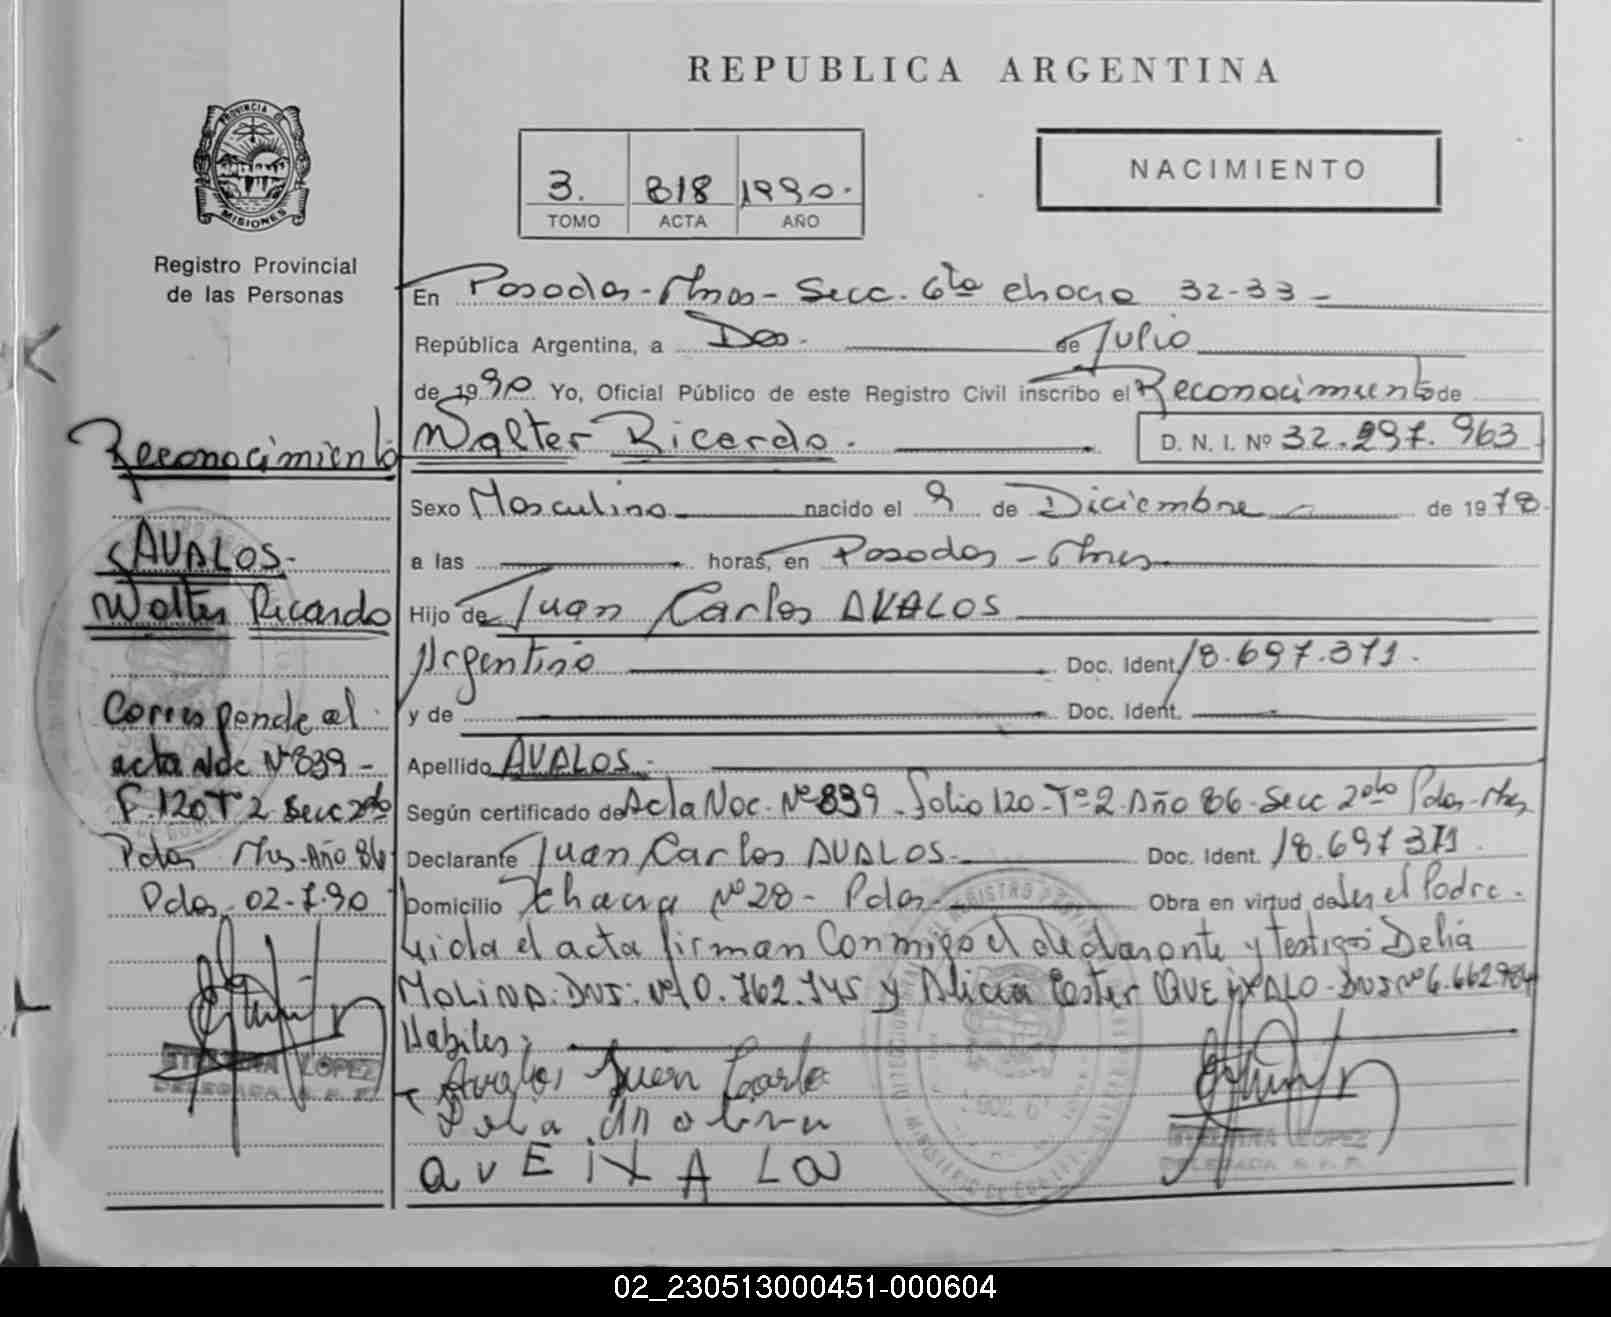 REPUBLICA ARGENTINA
PROVINCIA DE
MISIONES
Registro Provincial
de las Personas
3. 818 1990.
TOMO ACTA AÑO
NACIMIENTO
En Posadas-Mnes- Secc. 6ta chacra 32-33
República Argentina, a Dos. de Julio
de 1990 Yo, Oficial Público de este Registro Civil inscribo el Reconocimiento de
Walter Ricardo. D. N. I. Nº 32.297.963
Sexo Masculino nacido el 9 de Diciembre de 1978.
a las horas, en Posadas - Mnes
Hijo de Juan Carlos AVALOS
Argentino Doc. Ident. 18.697.371.
y de Doc. Ident.
Apellido AVALOS.
Según certificado de Acta Nac. Nº 839. Folio 120-Tº 2. Año 86. Secc 2da Pdas-Mnes
Declarante Juan Carlos AVALOS. Doc. Ident. 18.697.371.
Domicilio Chacra Nº 28- Pdas. Obra en virtud de Ser el Padre.
Leida el acta firman Conmigo el declarante y testigos Delia
MOLINA. DNI: Nº 10.762.745 y Alicia Ester QUEIXALO. DNI Nº 6.662.984
Habiles;
Avalos Juan Carlo
QUEIXALO
Reconocimiento
AVALOS.
Walter Ricardo
Corresponde al
acta Nac Nº 839-
F. 120 Tº 2 Secc 2da
Pdas Mnes-Año 86
Pdas. 02-7-90
LOPEZ
DELEGADA
LOPEZ
DELEGADA
02_230513000451-000604